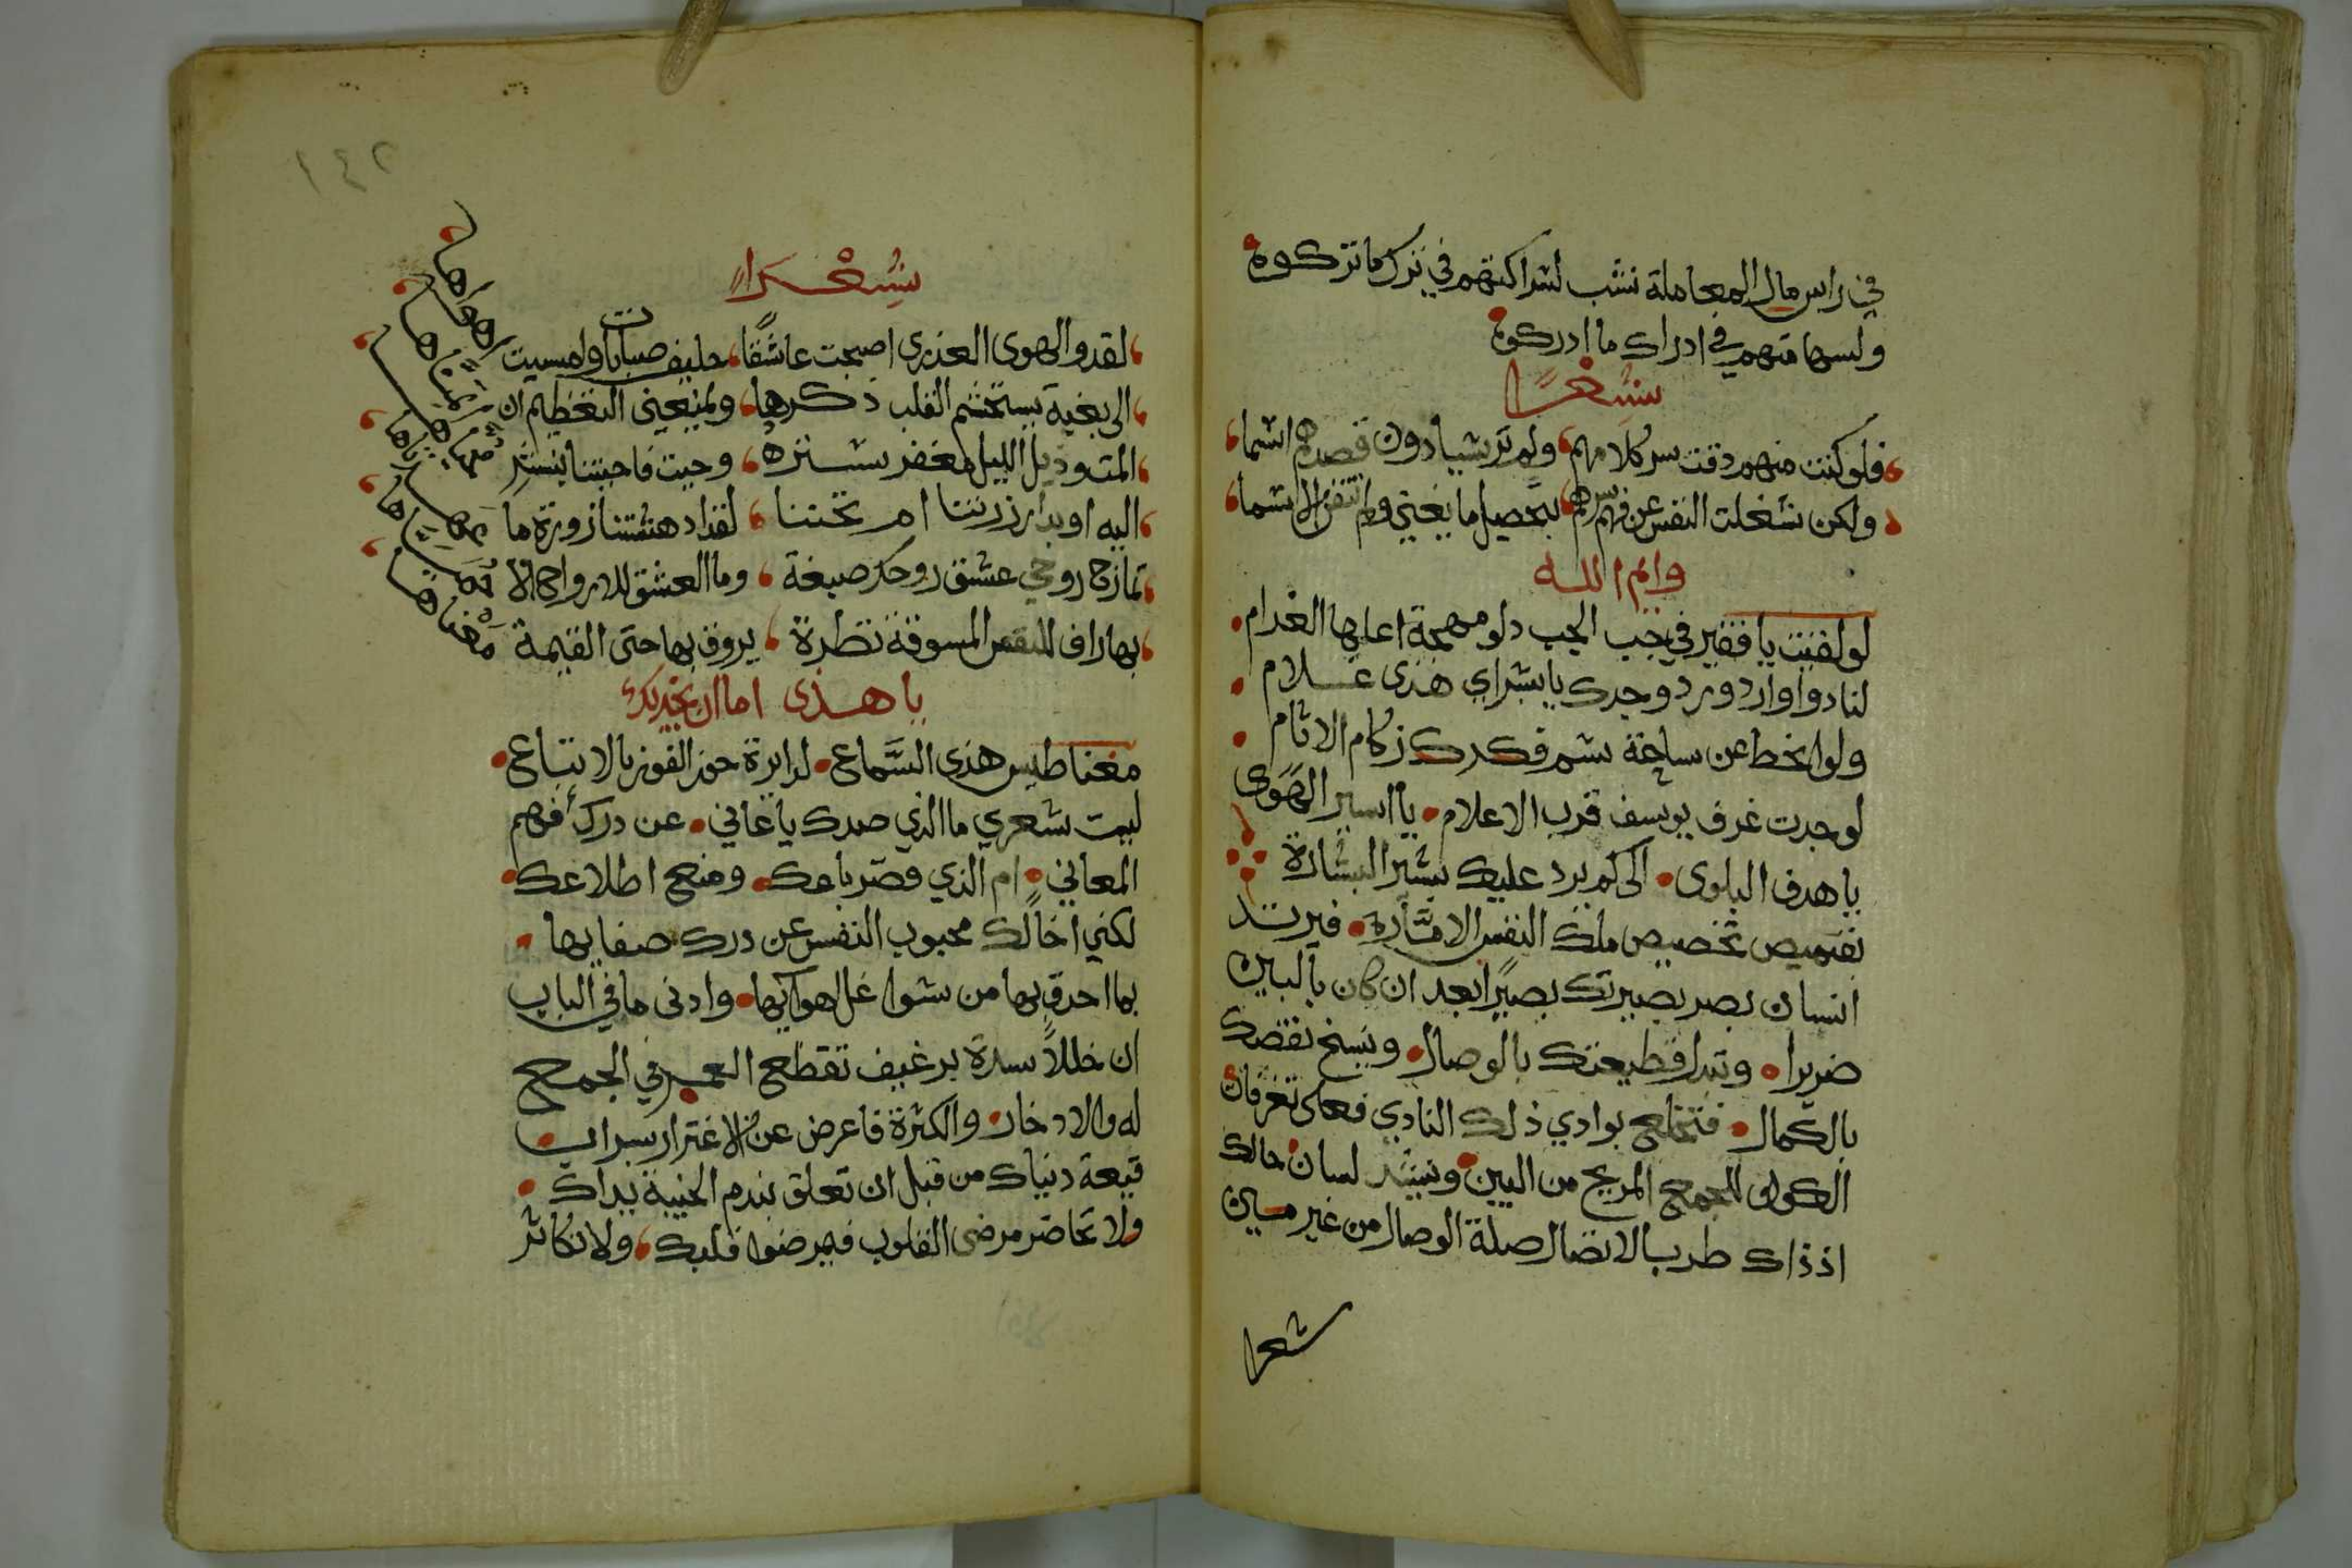 في راس مال المعاملة نشب لشراكتهم في ترك ما تركوه
ولسهامتهم في ادراك ما ادركوه
شعرًا
فلو كنت منهم ذقت سر كلامهم ولم تر شيا دون قصدهم اشما
ولكن شغلت النفس عن فهم سرهم بتحصيل ما يغني ولم تتقن الاسما
وايم الله
لو لقيت يا فقير في جب الحب دلو مهجة اعلها الغرام
لنادوا وارد ورد وجدك يا بشراي هذى غلام
ولو انحط عن ساحة شم فكرك زكام الاثام
لوجدت عرف يوسف قرب الاعلام يا اسير الهوى
يا هدف البلوى الى كم يرد عليك بشير البشارة
بقميص تخصيص ملك النفس الامارة فيرتد
انسان بصر بصيرتك بصيرًا بعد ان كان بالبين
ضريرا وتبدل قطيعتك بالوصال وينسخ نقصك
بالكمال فتخلع بوادي ذلك النادي نعلى تعرفات
الكون للجمع المريح من البين وينشد لسان حالك
اذ ذاك طرب الاتصال صلة الوصال من غير مين
شعرا
١٤٢
شعرا
لقد والهوى العذرى اصبحت عاشقًا حليف صبابات وامسيت
الى بغية يستخشم القلب ذكرها ويمنعني التعظيم ان
المت وذيل الليل مغفر ستره وحيت فاحيتنا بنشر
اليه اوبدار زرتنا ام تختنا لقد ادهشتنا زورة ما
تمازج روحي عشق روحك صبغة وما العشق للارواح الا
بها راف للنفس المسوقة نظرة يروق بها حتى القيمة معناها
يا هذى اما ان يجذبك
مغناطيس هذى السماع لدايرة حوز الفوز بالاتباع
ليت شعري ما الذي صدك يا عاني عن درك فهم
المعاني ام الذي قصر باعك ومنع اطلاعك
لكني اخالك محبوب النفس عن درك صفايها
بما احدق بها من شواغل اهوايها وادنى ما في الباب
ان خللاً سده برغيف تقطع العمر في الجمع
له والادخار والكثرة فاعرض عن الاغترار بسراب
قيعة دنياك من قبل ان تعلق بندم الخيبة يداك
ولا تحاضر مرضى القلوب فيمرضوا قلبك ولا تكاثر